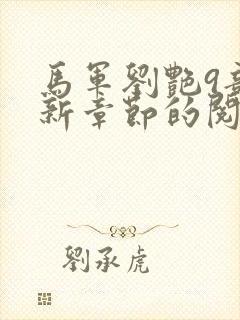 馬軍劉艷9章
新章節的閱
劉承虎